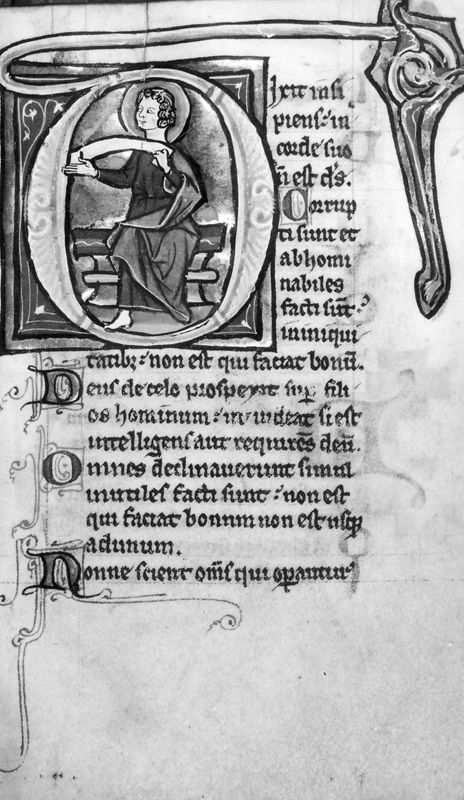 Dixit insi
piens: in
corde suo
nͫ est dͫs.
Corrup
ti sunt et
abhomi
nabiles
facti sūt
in iniqui
tatibꝫ: non est qui faciat bonū.
Deus de celo prospexit sup̱ fili
os hominum: ut videat si est
intelligens aut requirēs deū.
Omnes declinaverunt simul
inutiles facti sunt: non est
qui faciat bonum non est usqꝫ
ad unum.
Nonne scient om̄s qui oꝑantur